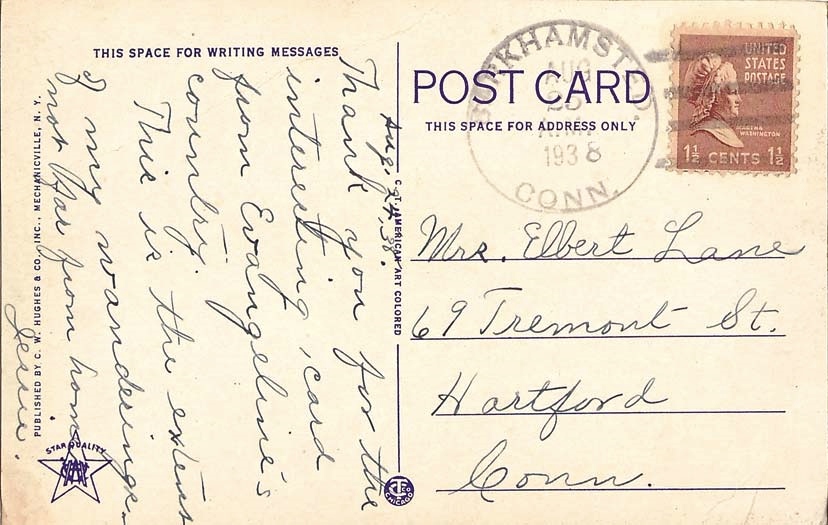 THIS SPACE FOR WRITING MESSAGES
Aug. 24, 38.
Thank you for the
interesting card
from Evangeline's
country.
This is the extent
of my wanderings.
not far from home.
Jessie.
PUBLISHED BY C. W. HUGHES & CO., INC., MECHANICVILLE, N. Y.
STAR QUALITY
C. T. AMERICAN ART COLORED
CHICAGO
POST CARD
THIS SPACE FOR ADDRESS ONLY
BURKHAMSTED.
AUG
25
1938
CONN.
UNITED
STATES
POSTAGE
MARTHA
WASHINGTON
1½ CENTS 1½
Mrs. Elbert Lane
69 Tremont St.
Hartford
Conn.